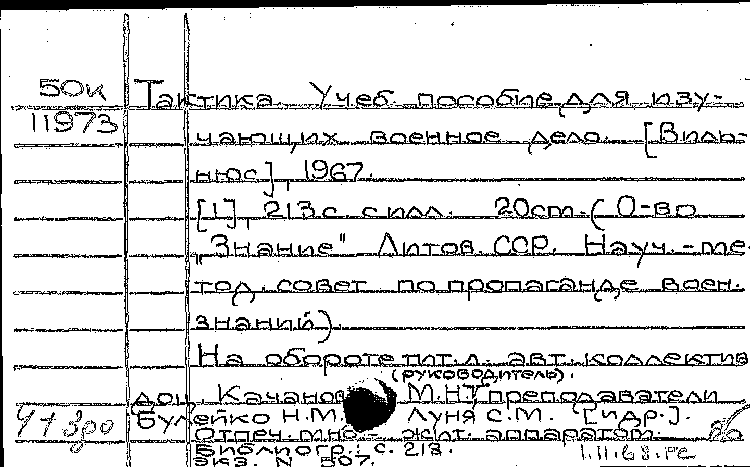 50к
11973
Тактика. Учеб. пособие для изу-
чающих военное дело. [Виль-
нюс], 1967.
[1], 213 с. с илл. 20cm. (О-во
„Знание" Литов. ССР. Науч.-ме-
тод. совет по пропаганде воен.
знаний).
На обороте тит. л. авт. коллектив
(руководитель).
доц. Качанов М.Н., преподаватели
Булейко Н.М. Луня С.М. [и др.].
Отпеч. мно- жит. аппаратом.
Библиогр.: с. 213.
Экз. N 507.